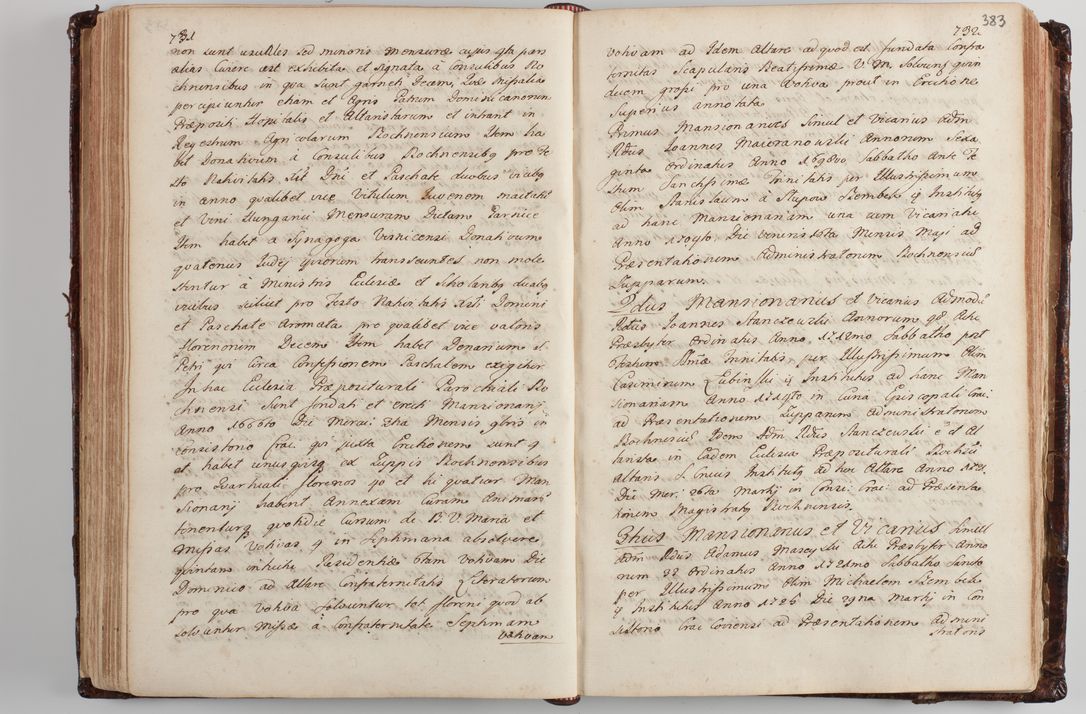 731
non sunt usuales sed minoris mensuræ cujus
alias Cwierc est exhibita et signata à Consulibus Bo
chnensibus in qua sunt garncy Decem, Quæ missalia
percipiuntur etiam ex Agris Patrum Dominicanorum
Præpositi Hospitalis et Altaristarum et intrant in
Regestrum Agricolarum Bochnensium Item ha
bet Donativum à Consulibus Bochnensibg pro Fe
sto Nativitatis Xti Dni et Paschate duobus vicibg
in anno qualibet vice Vitulum Juvenem
et Vini Hungarici Mensuram Dictam Garniec
Item habet a Synagoga Visnicensi Donativum
quatenus Judej transeuntes non mole
stentur à Ministris Ecclesiæ et Scholaribg duabg
vicibus scilicet pro Festo Nativitatis Xti Domini
et Paschate aromata pro qualibet vice valoris
florenorum Decem Item habet Denarium S.
Petri qui circa Confessionem Paschalem exigitur
In hac Ecclesia Præpositurali Parochiali Bo
chnensi sunt fundati et erecti Mansionarij
Anno 1666to Die Mercurij Mensis in
consistorio Crac: qui juxta Erectionem sunt 4
et habet unusquisq ex Zuppis Bochnensibus
pro Quartuali florenos 40 et hi quatuor Man
sionarij habent Annexam Curam Animarum
tenenturq quotidie Cursum de B. V. Maria et
missas Votivas 4 in Septimana absolvere
quintam intuitu Residentiæ 6tam Votivam Die
Dominico ad Altare Confraternitatis Literatorum
pro qua Votiva solvuntur tot floreni quod ab
solvuntur Missæ à Confraternitate Septimam
votivam
383
732
votivam ad Idem Altare ad quod est fundata Confra
ternitas Scapularis Beatissimæ V. M. solvunt quin
decem grossi pro una Votiva prout in Erectione
Superius annotata
Primus Mansionarius Simul et Vicarius Adm
Rdus Joannes Maieranowski Annorum Sexa
ginta Ordinatus Anno 1698vo Sabbatho Ante Fe
stum Sanctissimæ Trinitatis per Illustrissimum
Olim Stanislaum à Słupow Szembek Institutg
ad hanc Mansionariam una cum Vicariatu
Anno Die Veneris Mensis Maji ad
Præsentationem Administratorum Bochnensiũ
Zupparum.
2dus Mansionarius et Vicarius Admodũ
Rdus Joannes Stanczewski Annorum 48 Actu
Præsbyter Ordinatus Anno 1712mo Sabbatho post
Festum SSmæ Trinitatis per Illustrissimum Olim
Casimirum Łubinski Institutus ad hanc Man
sionariam Anno in Curia Episcopali Crac:
ad Præsentationem Zupparum administratorum
Bochnensiũ Idem Adm Rdus Stanczewski est Al
tarista in Eadem Ecclesia Præpositurali Bochen:
Altaris S. Crucis Institutg ad hoc Altare Anno
Die Mer: 26ta Martij in Consi: Crac: ad Præsenta
tionem Magistratg Bochnensis.
3tius Mansionarius et Vicarius Simul
Adm Rdus Adamus Maseyski Actu Præsbyter Anno
rum 32 Ordinatus Anno 1721mo Sabbatho Sancto
per Illustrissimum Olim Michaelem Szembek
Institutus Anno 1725 Die 29na Martij in Con
sistorio Crac: Coriensi ad Præsentationem admini
stratoris